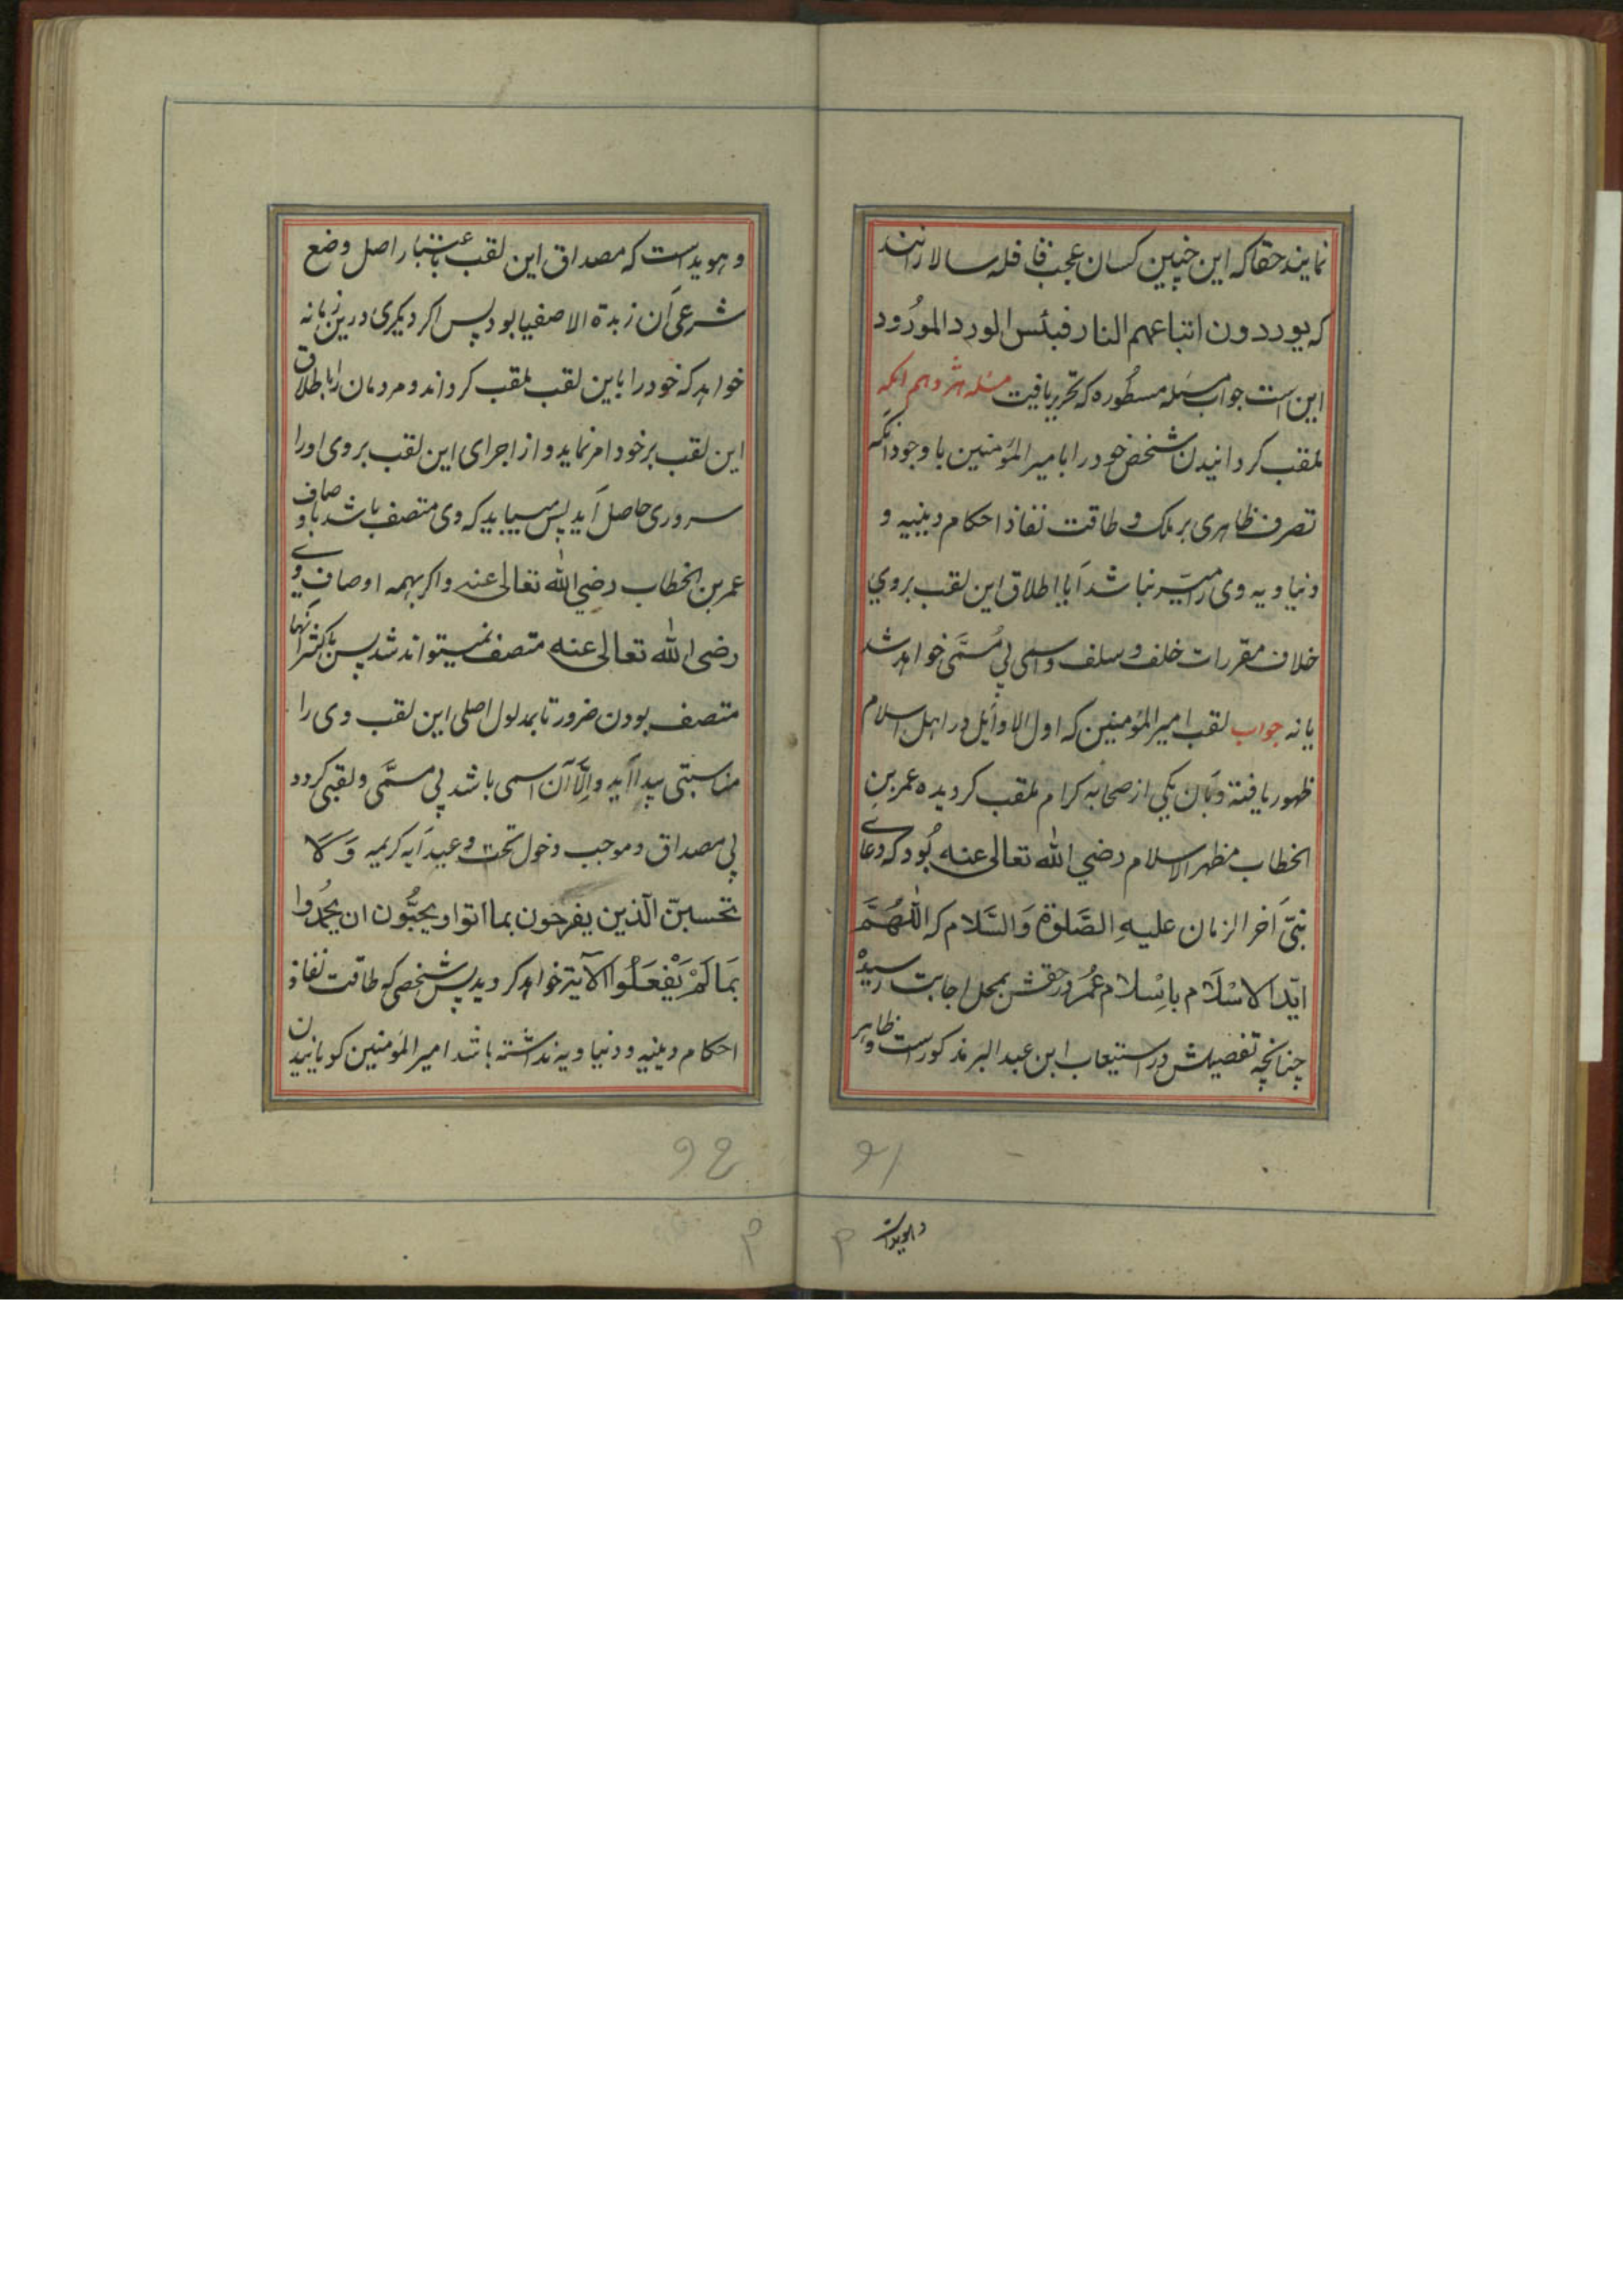 نمایند حقا که این چنین کسان عجب قافله سالارانند
که یوردون اتباعهم النار فبئس الورد المورود
این است جواب مسئله مسطوره که تحریر یافت مسئله هژدهم انکه
ملقب کردانیدن شخص خود را با میر المؤمنین با وجود انکه
تصرف ظاهری بر ملک و طاقت نفاذ احکام دینیه و
دنیاویه وی را میسر نباشد آیا اطلاق این لقب بروي
خلاف مقررات خلف و سلف و اسمی بی مسمّی خواهد شد
یا نه جواب لقب امیر المؤمنین که اول الاوایل در اهل اسلام
ظهور یافته و بآن یکی از صحابه کرام ملقب کردیده عمر بن
الخطاب مظهر الاسلام رضي الله تعالی عنه بُود که دعای
نبیّ آخر الزمان علیهِ الصَّلوة وَالسَّلام که اللّٰهُمَّ
ایّد الاسْلَام باِسْلام عُمَر در حقش بمحل اجابت رسیدْ
چنانچه تفصیلش در استیعاب ابن عبد البر مذکور است و ظاهر
و هویداست
و هویداست که مصداق این لقب باعتبار اصل وضع
شرعی آن زبدة الاصفیا بود پس اکر دیکری درین زمانه
خواهد که خود را باین لقب ملقب کرداند و مردمان را باطلاق
این لقب بر خود امر نماید و از اجرای این لقب بروی او را
سروری حاصل آید پس میباید که وی متصف باشد باوصاف
عمر بن الخطاب رضي الله تعالی عنه و اکر بهمه اوصاف وی
رضی الله تعالی عنه متصف نمیتواند شد پس باکثر آنها
متصف بودن ضرور تا بمدلول اصلی این لقب وی را
مناسبتی پیدا آید و اِلّا آن اسمی باشد بی مسمَّی و لقبی کردد
بی مصداق و موجب دخول تحت وعید آیه کریمه وَ لَا
تحسبنّ الّذین یفرحون بما اتوا و یحبُّون ان یُحمدُوا
بمَا لَمْ یَفْعَلُوا الآیة خواهد کردید پس شخصی که طاقت نفاذ
احکام دینیه و دنیاویه نداشته باشد امیر المؤمنین کویانیدن